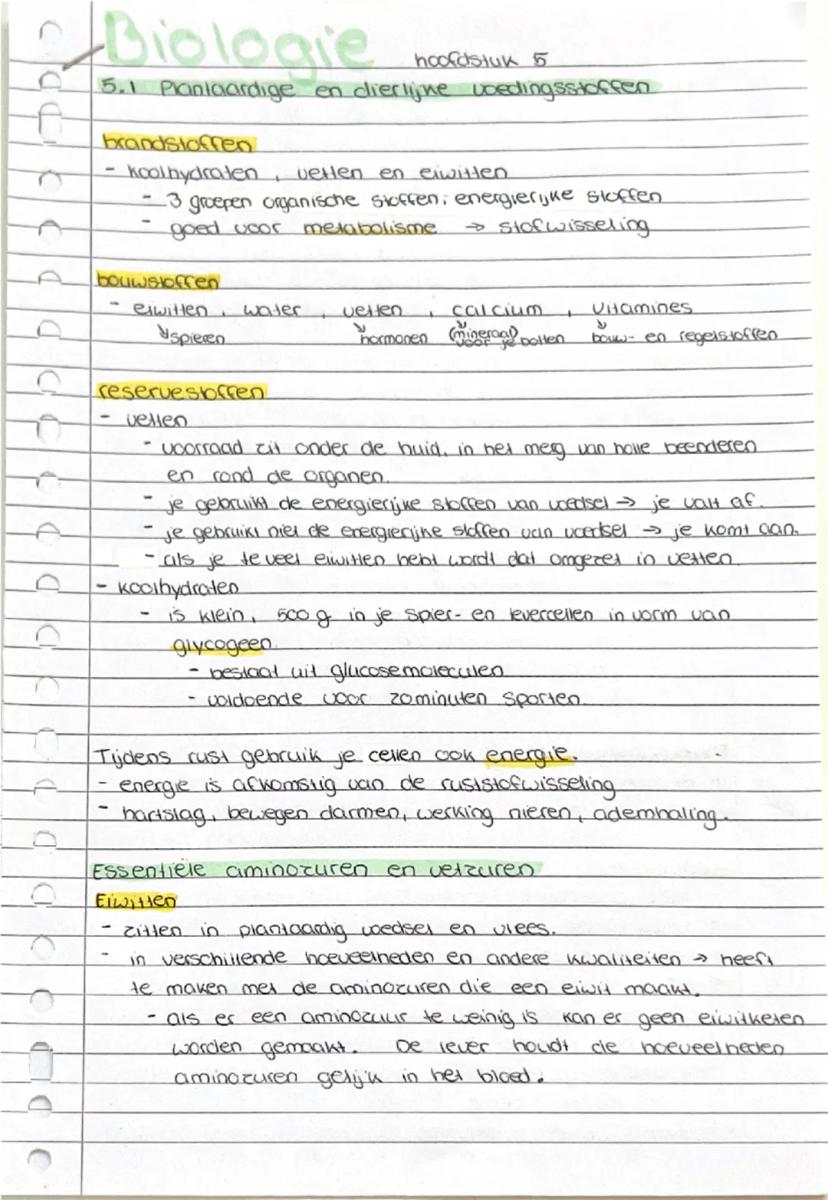 Biologie hoofdstuk 5
5.1 Plantaardige en dierlijke voedingsstoffen
brandstoffen
- koolhydraten, vetten en eiwitten
- 3 groepen organische stoffen; energierijke stoffen
- goed voor metabolisme → stofwisseling
bouwstoffen
- eiwitten, water, vetten, calcium, vitamines
↘ spieren ↘ hormonen (mineraal) voor je botten ↘ bouw- en regelstoffen
reservestoffen
- vetten
- voorraad zit onder de huid, in het merg van holle beenderen
en rond de organen.
- je gebruikt de energierijke stoffen van voedsel → je valt af.
- je gebruikt niet de energierijke stoffen van voedsel → je komt aan.
- als je te veel eiwitten hebt wordt dat omgezet in vetten.
- koolhydraten
- is klein, 500 g in je spier- en levercellen in vorm van
glycogeen.
- bestaat uit glucosemoleculen
- voldoende voor 20 minuten sporten.
Tijdens rust gebruik je cellen ook energie.
- energie is afkomstig van de ruststofwisseling
- hartslag, bewegen darmen, werking nieren, ademhaling.
Essentiële aminozuren en vetzuren
Eiwitten
- zitten in plantaardig voedsel en vlees.
- in verschillende hoeveelheden en andere kwaliteiten → heeft
te maken met de aminozuren die een eiwit maakt.
- als er een aminozuur te weinig is kan er geen eiwitketen
worden gemaakt. De lever houdt de hoeveelheden
aminozuren gelijk in het bloed.